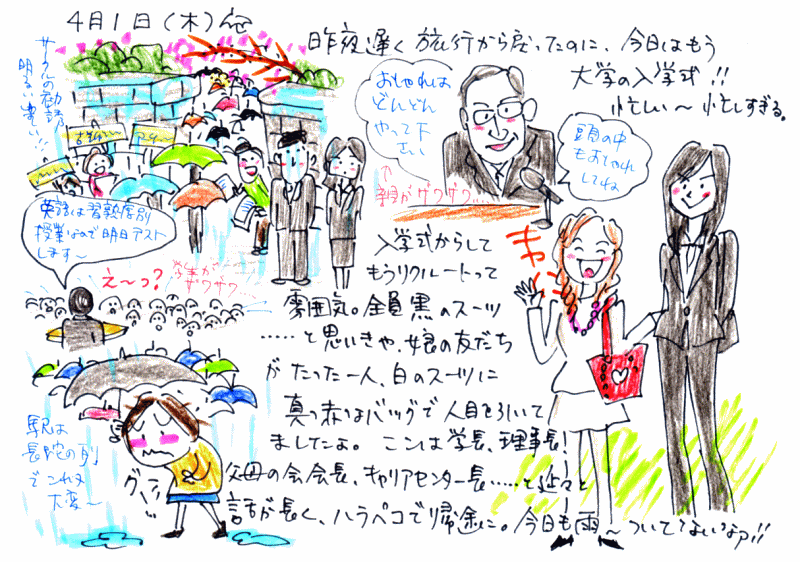 4月1日(木)
昨夜遅く旅行から戻ったのに、今日はもう
大学の入学式!!
忙しい〜忙しすぎる。
サークルの勧誘
明るい
おしゃれは
どんどん
やって下
さい
↑
親がザワザワ…
頭の中
もおしゃれ
してね
英語は習熟度別
授業なので明日テスト
します〜
え〜っ?
学生が
ザワザワ…
キャハハ
入学式からして
もうリクルートって
雰囲気。全員黒のスーツ
……と思いきや、娘の友だち
がたった一人、白のスーツに
真っ赤なバッグで人目を引いて
ましたよ。ここは学長、理事長!
父母の会会長、キャリアセンター長……と延々と
話が長く、ハラペコで帰途に。今日も雨〜ついてないなァ!!
駅は
長蛇の列
でこれも
大変〜
グー…